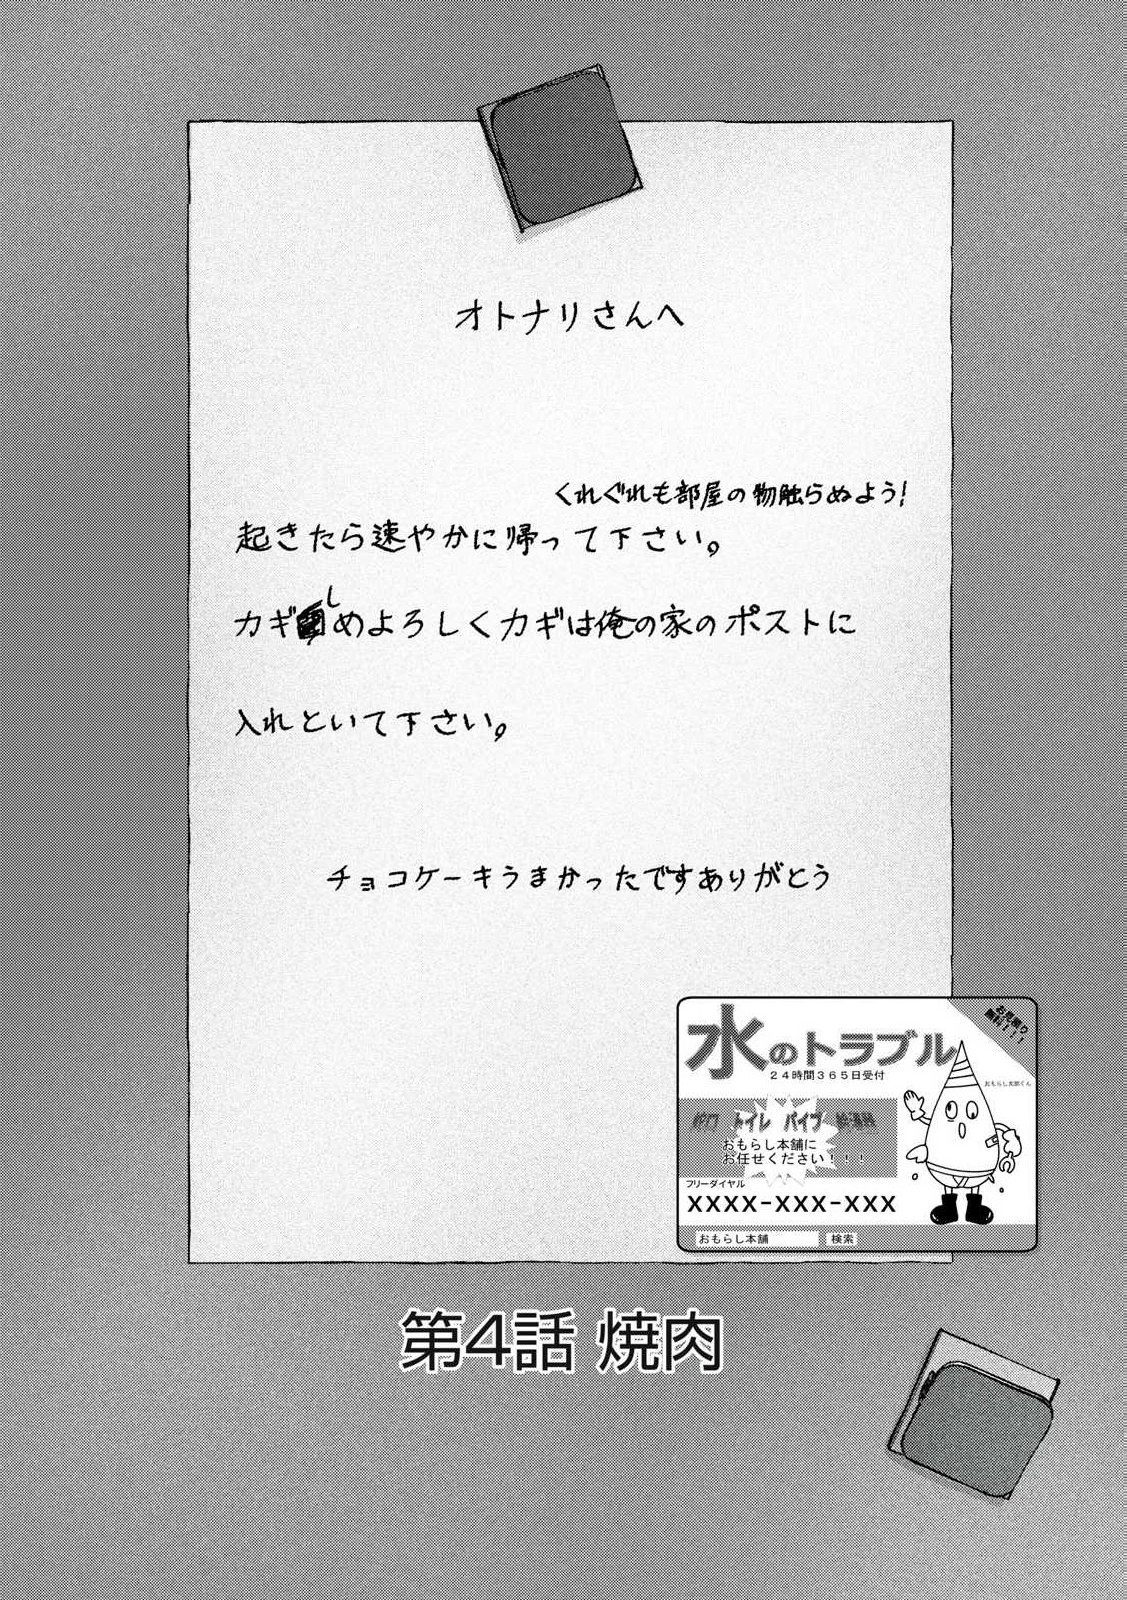 オトナリさんへ
くれぐれも部屋の物触らぬよう!
起きたら速やかに帰って下さい。
カギしめよろしくカギは俺の家のポストに
入れといて下さい。
チョコケーキうまかったですありがとう
お見積り
無料!!!
水のトラブル
24時間365日受付
おもらし太郎くん
蛇口 トイレ パイプ 給湯器
おもらし本舗に
お任せください!!!
フリーダイヤル
XXXX-XXX-XXX
おもらし本舗 検索
第4話 焼肉